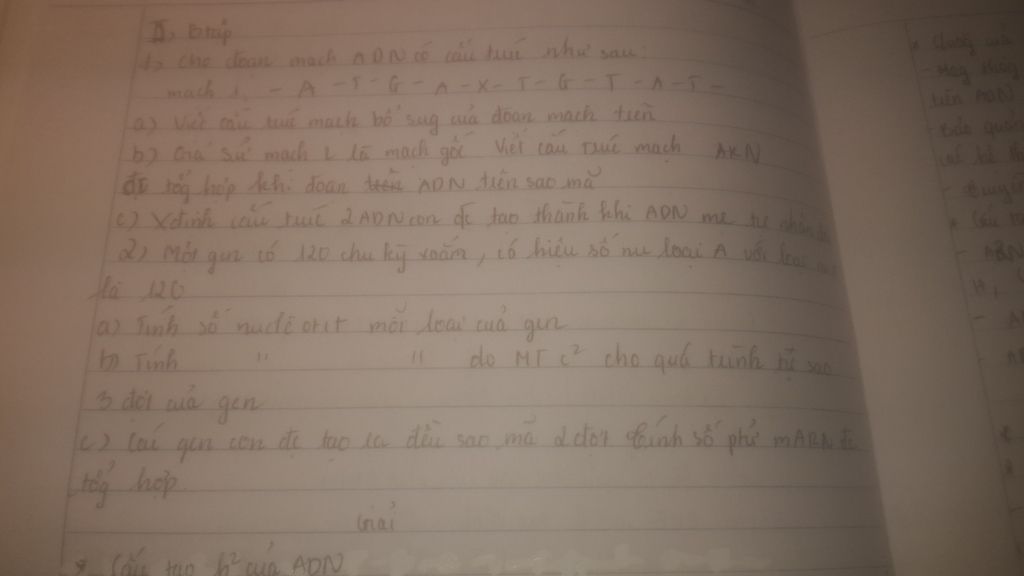 II, Btập
1, Cho đoạn mạch ADN có cấu trúc như sau:
mạch 1. - A - T - G - A - X - T - G - T - A - T -
a) Viết cấu trúc mạch bổ sug của đoạn mạch trên
b) Giả sử mạch 1 là mạch gốc Viết cấu trúc mạch ARN
đc tổg hợp khi đoạn ADN trên sao mã
c) Xđịnh cấu trúc 2 ADN con đc tạo thành khi ADN mẹ tự nhân
2) Một gen có 120 chu kỳ xoắn, có hiệu số nu loại A với loại
là 120
a) Tính số nuclêotit mỗi loại của gen
b) Tính " " do MT c² cho quá trình tự sao
3 đợt của gen
c) Các gen con đc tạo ra đều sao mã 2 đợt tính số ptử mARN đc
tổg hợp.
Giải
* Cấu tạo h² của ADN
* Chứg
tiền ADN
- Bảo quản
- ARN
H,